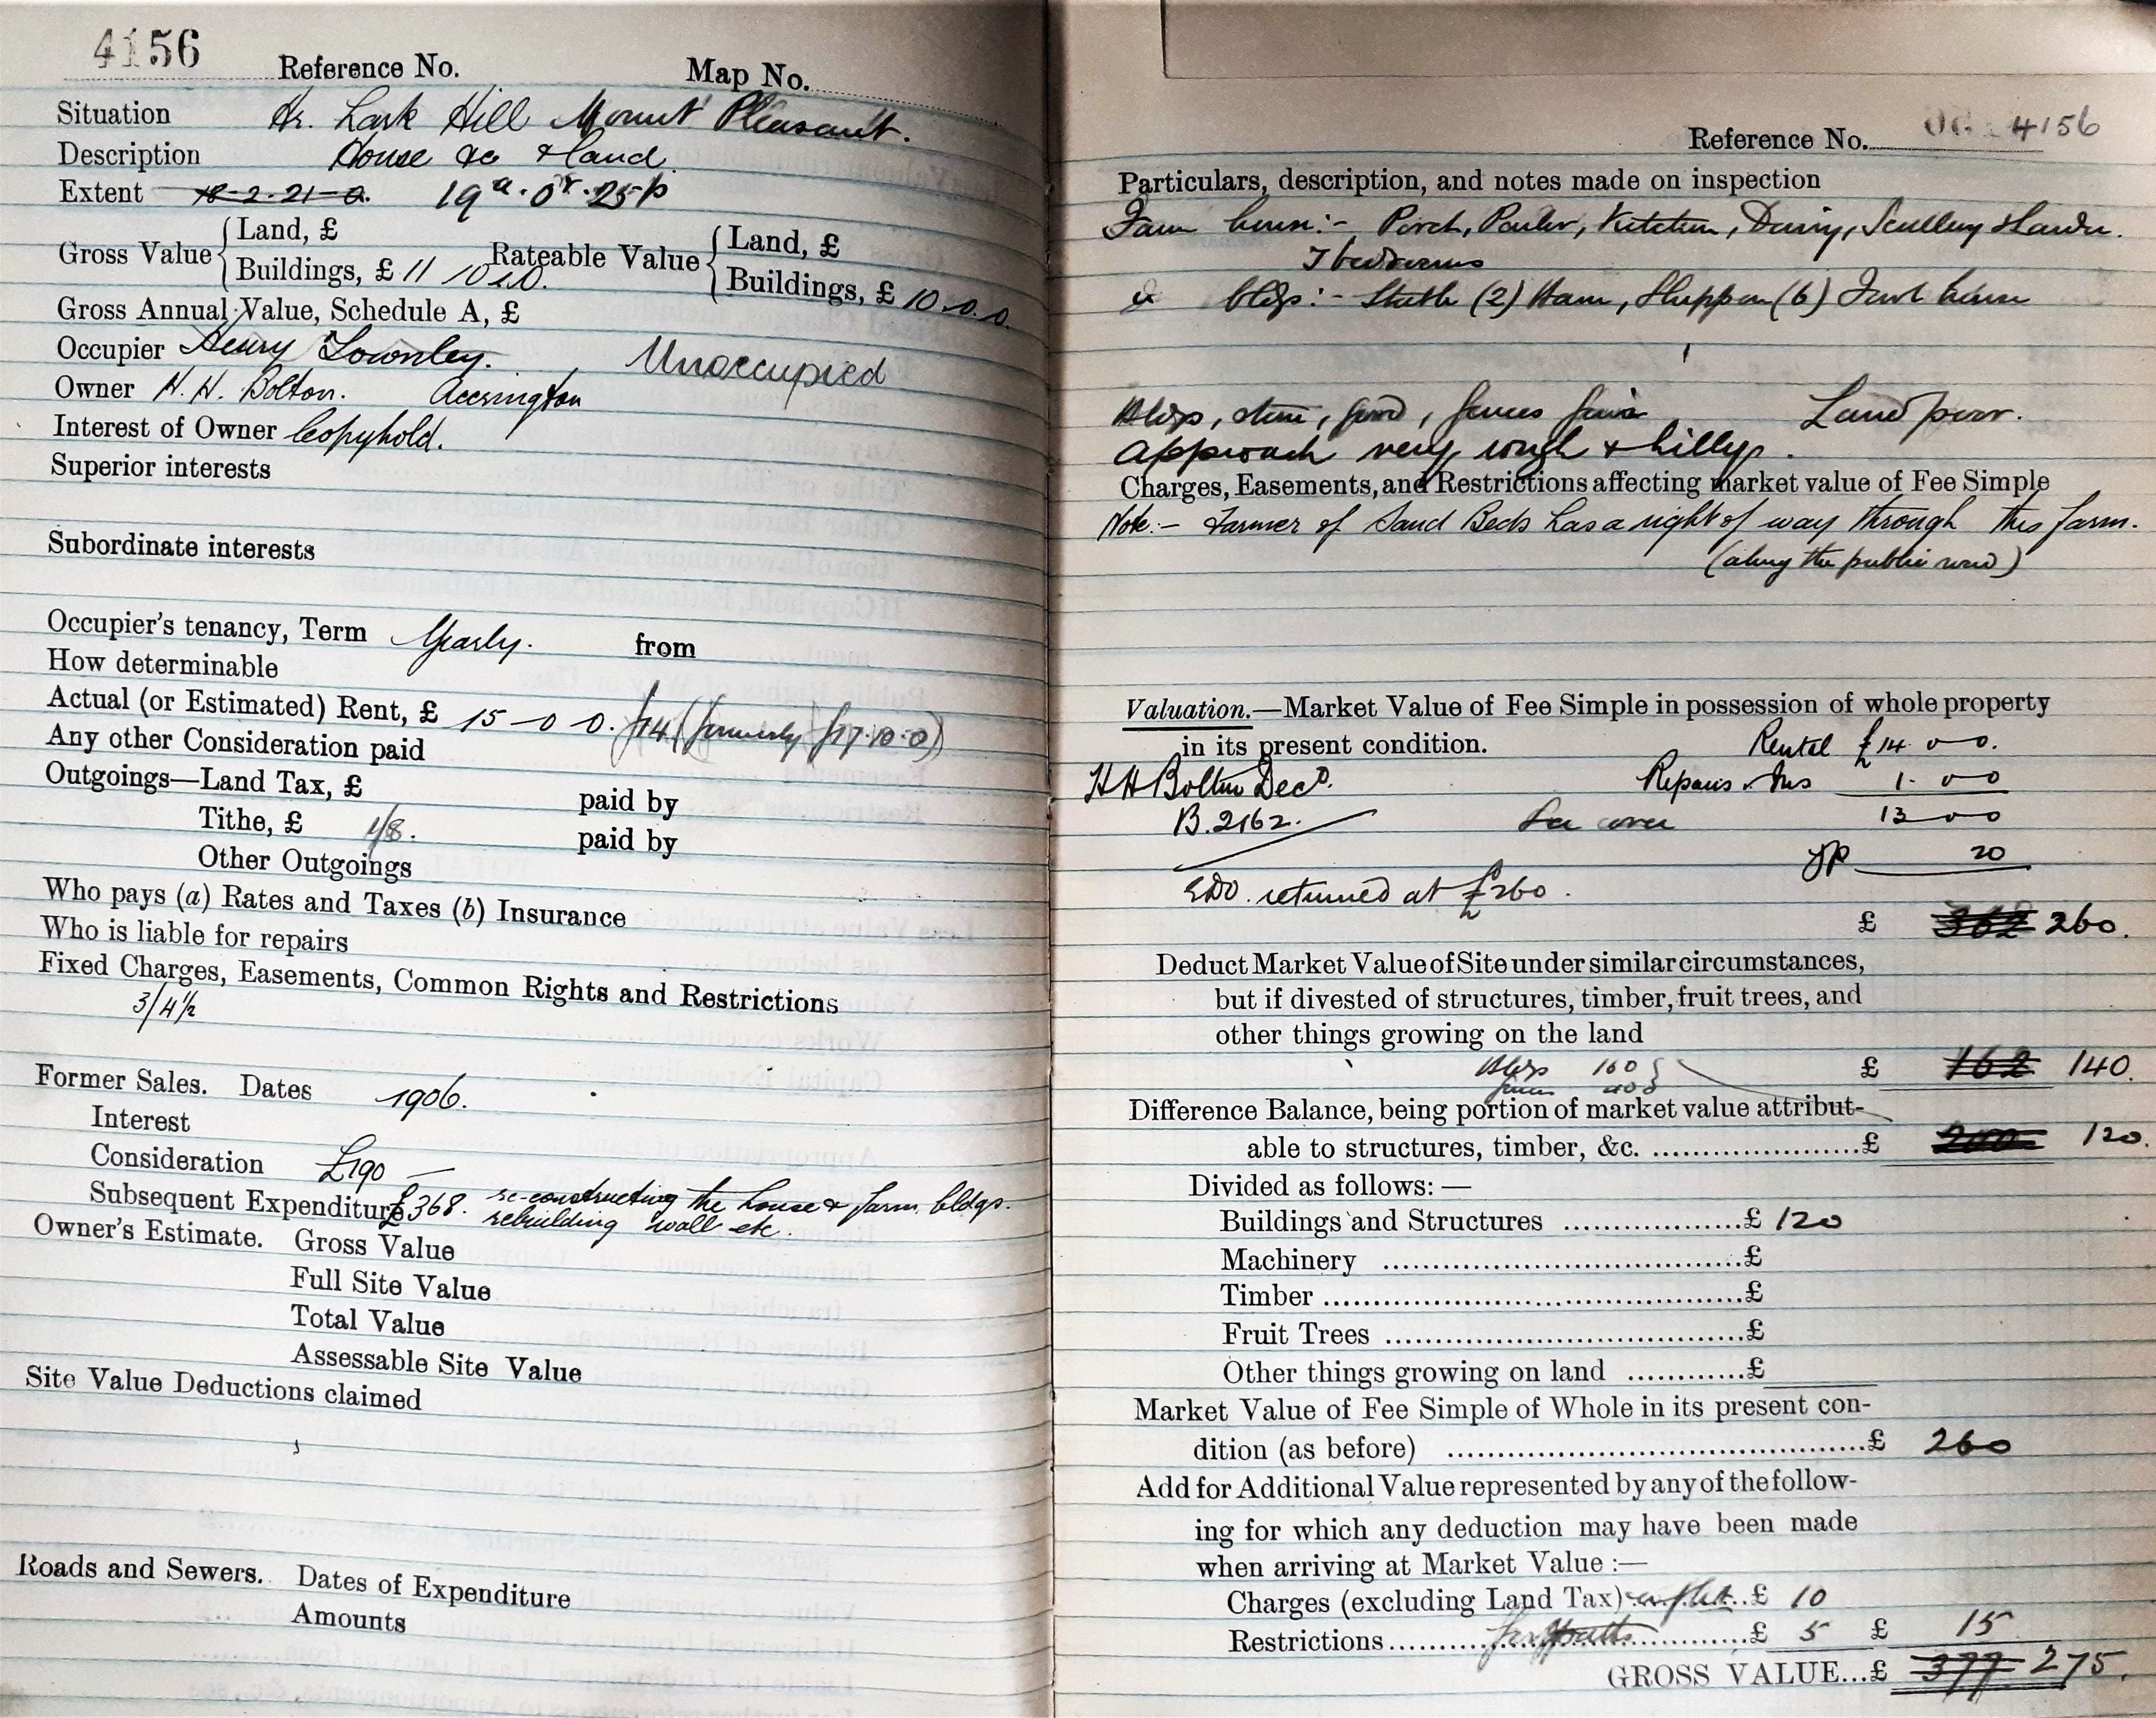 4156 Reference No. Map No.
Situation Hr. Lark Hill Mount Pleasant.
Description House &c & land
Extent 18-2-21-0. 19a. 0r. 25p
Gross Value { Land, £ Rateable Value { Land, £
Buildings, £ 11 10 0. Buildings, £ 10.0.0
Gross Annual Value, Schedule A, £
Occupier Henry Townley. Unoccupied
Owner H. H. Bolton. Accrington
Interest of Owner Copyhold.
Superior interests
Subordinate interests
Occupier's tenancy, Term Yearly. from
How determinable
Actual (or Estimated) Rent, £ 15-0 0. £14 (formerly £17.10.0)
Any other Consideration paid
Outgoings—Land Tax, £ paid by
Tithe, £ 1/8. paid by
Other Outgoings
Who pays (a) Rates and Taxes (b) Insurance
Who is liable for repairs
Fixed Charges, Easements, Common Rights and Restrictions
3/4½
Former Sales. Dates 1906.
Interest
Consideration £190 —
Subsequent Expenditure £368. re-constructing the house & farm bldgs.
rebuilding wall etc.
Owner's Estimate. Gross Value
Full Site Value
Total Value
Assessable Site Value
Site Value Deductions claimed
Roads and Sewers. Dates of Expenditure
Amounts
Reference No. 4156
Particulars, description, and notes made on inspection
Farm house:- Porch, Parlor, Kitchen, Dairy, Scullery & Larder.
3 bedrooms
bldgs:- Stable (2) Barn, Shippon (6) Fowl house
Bldgs, stone, good, fences fair Land poor.
Approach very rough & hilly.
Charges, Easements, and Restrictions affecting market value of Fee Simple
Note:- Farmer of Sand Beds has a right of way through this farm.
(along the public road)
Valuation.—Market Value of Fee Simple in possession of whole property
in its present condition. Rental £14 0 0.
H H Bolton Decd. Repairs & Ins 1. 0 0
B.2162. See over 13 0 0
YP 20
EDO. returned at £260.
£ 362 260.
Deduct Market Value of Site under similar circumstances,
but if divested of structures, timber, fruit trees, and
other things growing on the land
Bldgs 160 } £ 162 140.
40 }
Difference Balance, being portion of market value attribut-
able to structures, timber, &c. £ 200 120.
Divided as follows: —
Buildings and Structures £ 120
Machinery £
Timber £
Fruit Trees £
Other things growing on land £
Market Value of Fee Simple of Whole in its present con-
dition (as before) £ 260
Add for Additional Value represented by any of the follow-
ing for which any deduction may have been made
when arriving at Market Value :—
Charges (excluding Land Tax) £ 10
Restrictions £ 5 £ 15
GROSS VALUE...£ 377 275.